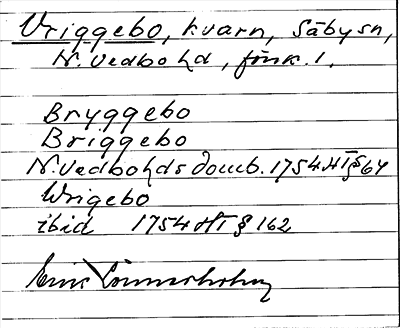 Vriggebo, kvarn, Säby sn,
N. Vedbo hd, Jönk. l.
Bryggebo
Briggebo
N. Vedbo hds domb. 1754 HT § 64
Wrigebo
ibid 1754 HT § 162